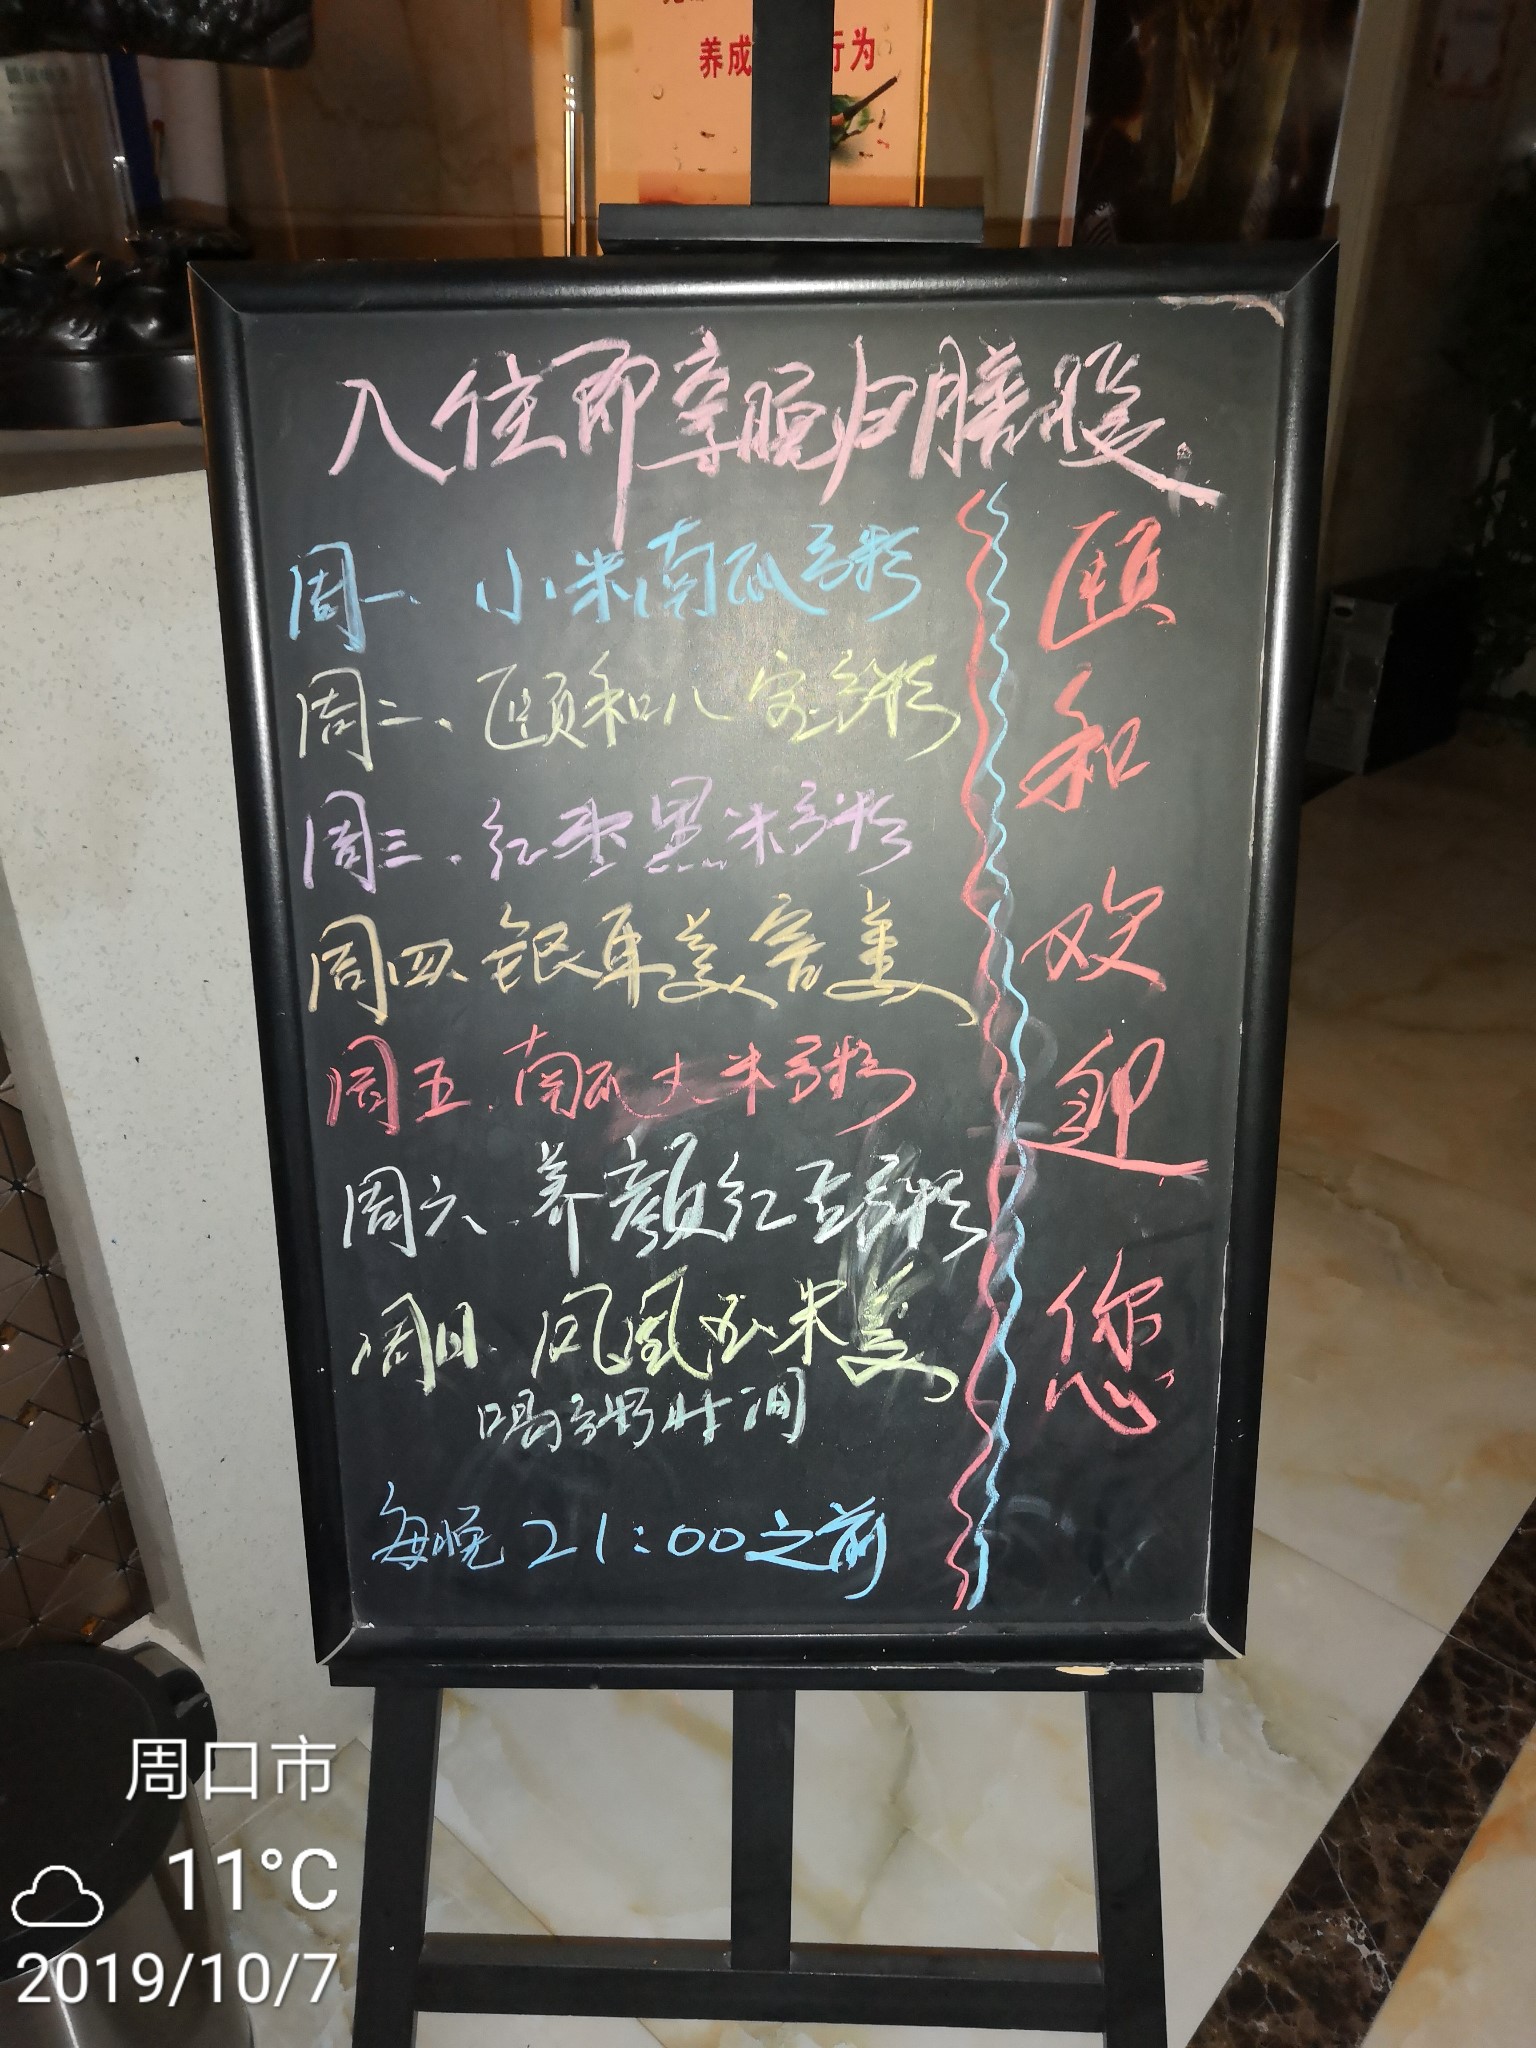 养成
行为
入住即享晚归膳暖
周一、小米南瓜粥
周二、颐和八宝粥
周三、红枣黑米粥
周四、银耳美容羹
周五、南瓜大米粥
周六、养颜红豆粥
周日、凤凰玉米羹
喝粥时间
每晚21:00之前
颐和欢迎您
周口市
11°C
2019/10/7